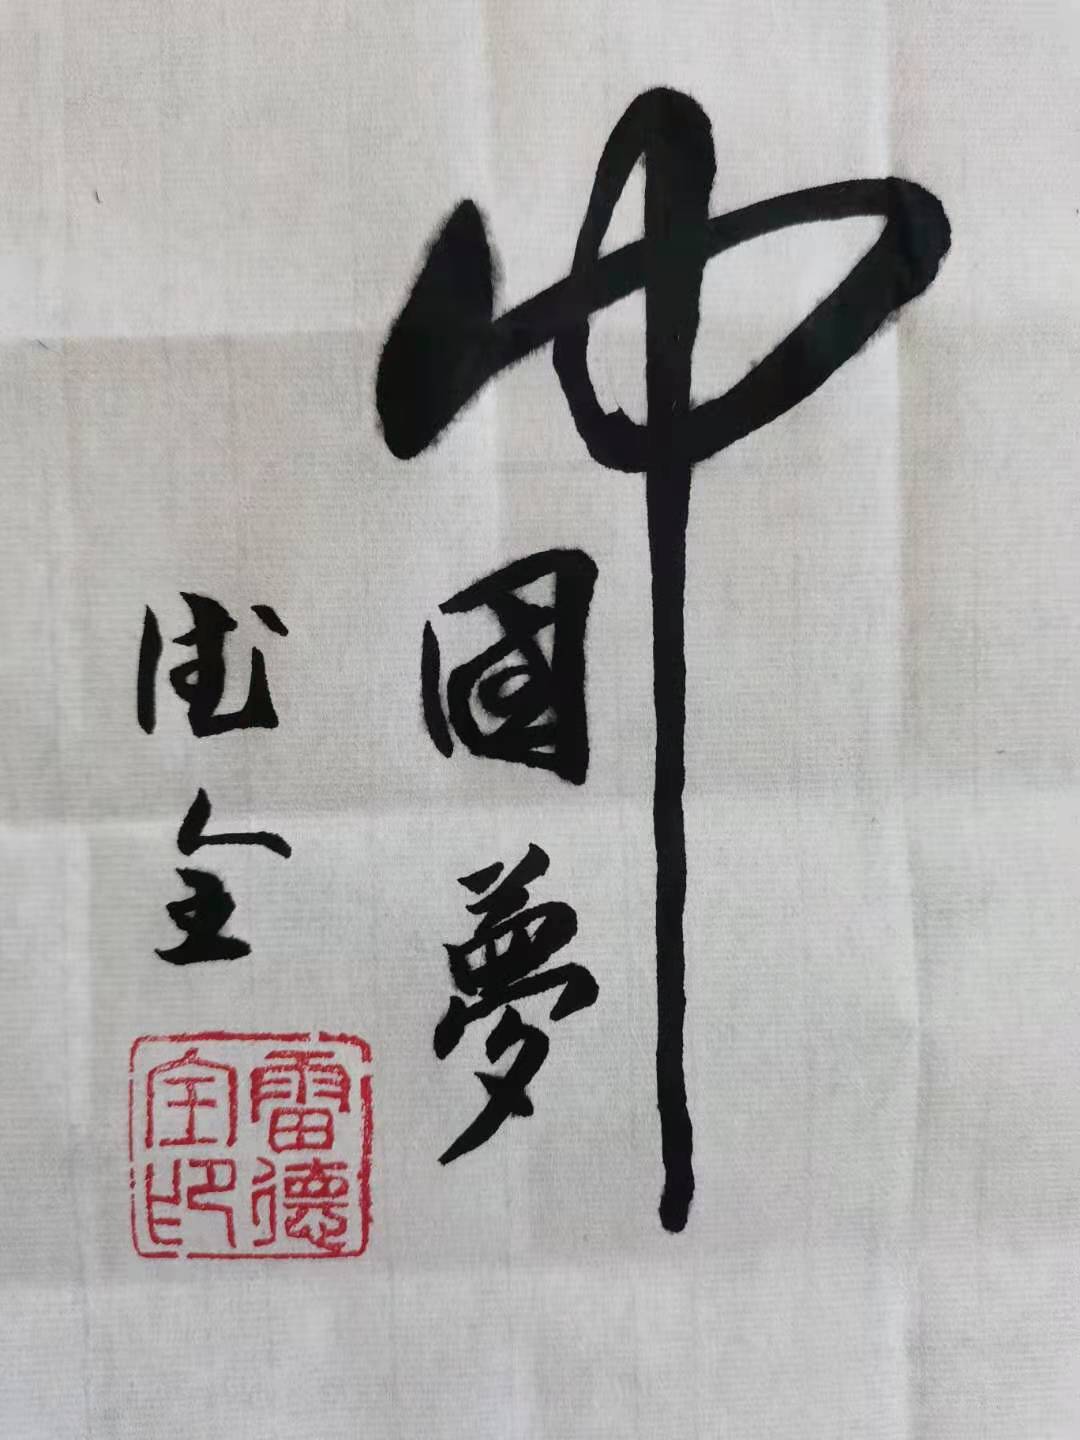 中國夢
德全
雷德全印